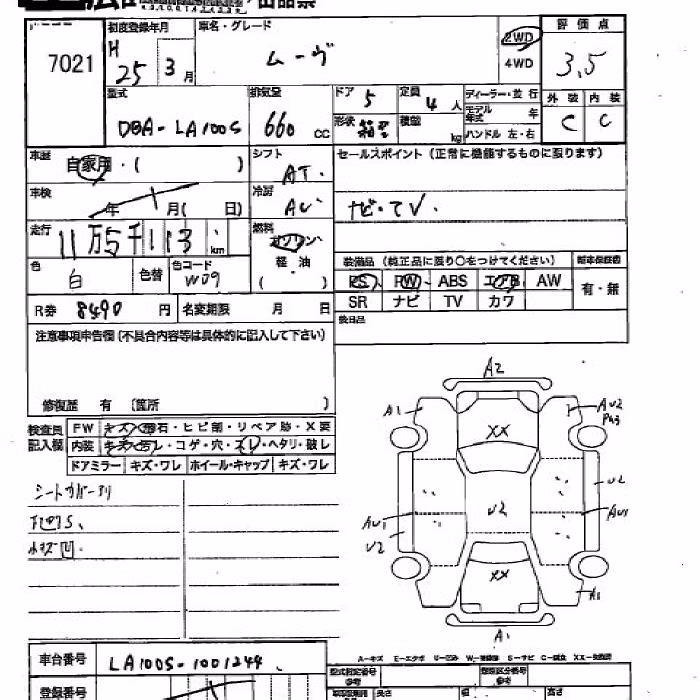 7021
初度登録年月
H 25 3 月
車名・グレード
ムーヴ
2WD
4WD
評価点
3.5
型式
DBA-LA100S
排気量
660 CC
ドア
5
定員
4 人
ディーラー・並行
モデル年式 年
ハンドル 左・右
形状
積載
kg
外装
内装
C
C
車歴
自家用・( )
シフト
AT
セールスポイント (正常に機能するものに限ります)
車検
年 月( 日)
冷房
ナビ・TV.
走行
11万5千113 km
燃料
ガソリン
軽油
( )
色
白
色替
色コード
W09
装備品 (純正品に限り○をつけてください)
新車保証書
PS PW ABS エアB AW
SR ナビ TV カワ
有・無
R券
8490 円
名変期限
月 日
後日品
注意事項申告欄 (不具合内容等は具体的に記入して下さい)
修復歴 有 〔箇所 〕
検査員記入欄
FW キズ・飛石・ヒビ割・リペア跡・X要
内装 キズ・汚れ・コゲ・穴・スレ・ヘタリ・破し
ドアミラー キズ・ワレ ホイール・キャップ キズ・ワレ
シートカバーアリ
A2
A1
XX
U2
U2
U2
XX
A1
A1
車台番号
LA100S-1001244
登録番号
A-キズ E-エクボ
型式指定番号
参考
類別区分番号
参考
長さ
幅
高さ